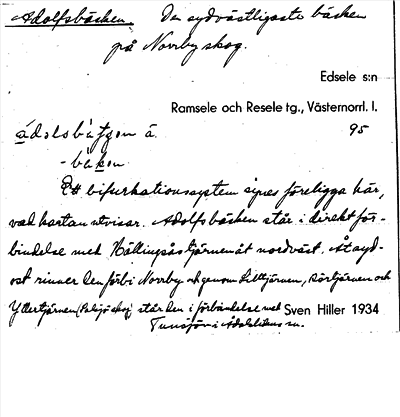 Adolfsbäcken. Den sydvästligaste bäcken
på Norrby skog.
Edsele s:n
Ramsele och Resele tg., Västernorrl. l.
95
-bäkən
Ett bifurkationssystem synes föreligga här,
vad kartan utvisar. Adolfsbäcken står i direkt för-
bindelse med Hällingsåstjärnen åt nordväst. Åt syd-
ost rinner den förbi Norrby och genom Lilltjärnen, Rörtjärnen och
Yttertjärnen står den i förbindelse med
Sven Hiller 1934